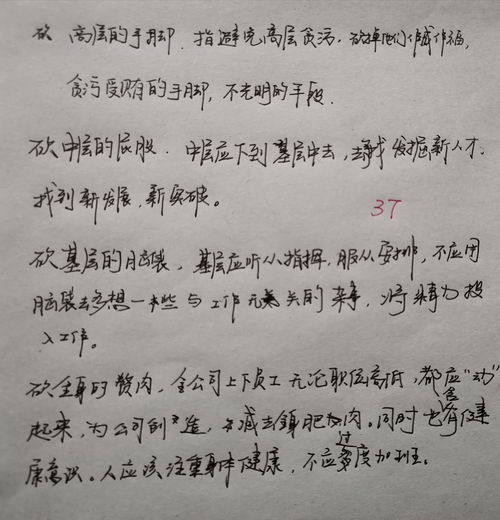 砍 高层的手脚，指避免高层贪污，砍掉他们作威作福，
贪污受贿的手脚，不光明的手段．
砍中层的屁股．中层应下到基层中去，去找发掘新人才，
找到新发展，新突破。
37
砍基层的脑袋，基层应听从指挥，服从安排，不应用
脑袋去多想一些与工作无关的杂事，将精力投
入工作。
砍全身的赘肉，全公司上下员工无论职位高低，都应"动"
起来，为公司创造，去减去身肥肉。同时也会有健
康意识。人应该注重身体健康，不应过度加班。